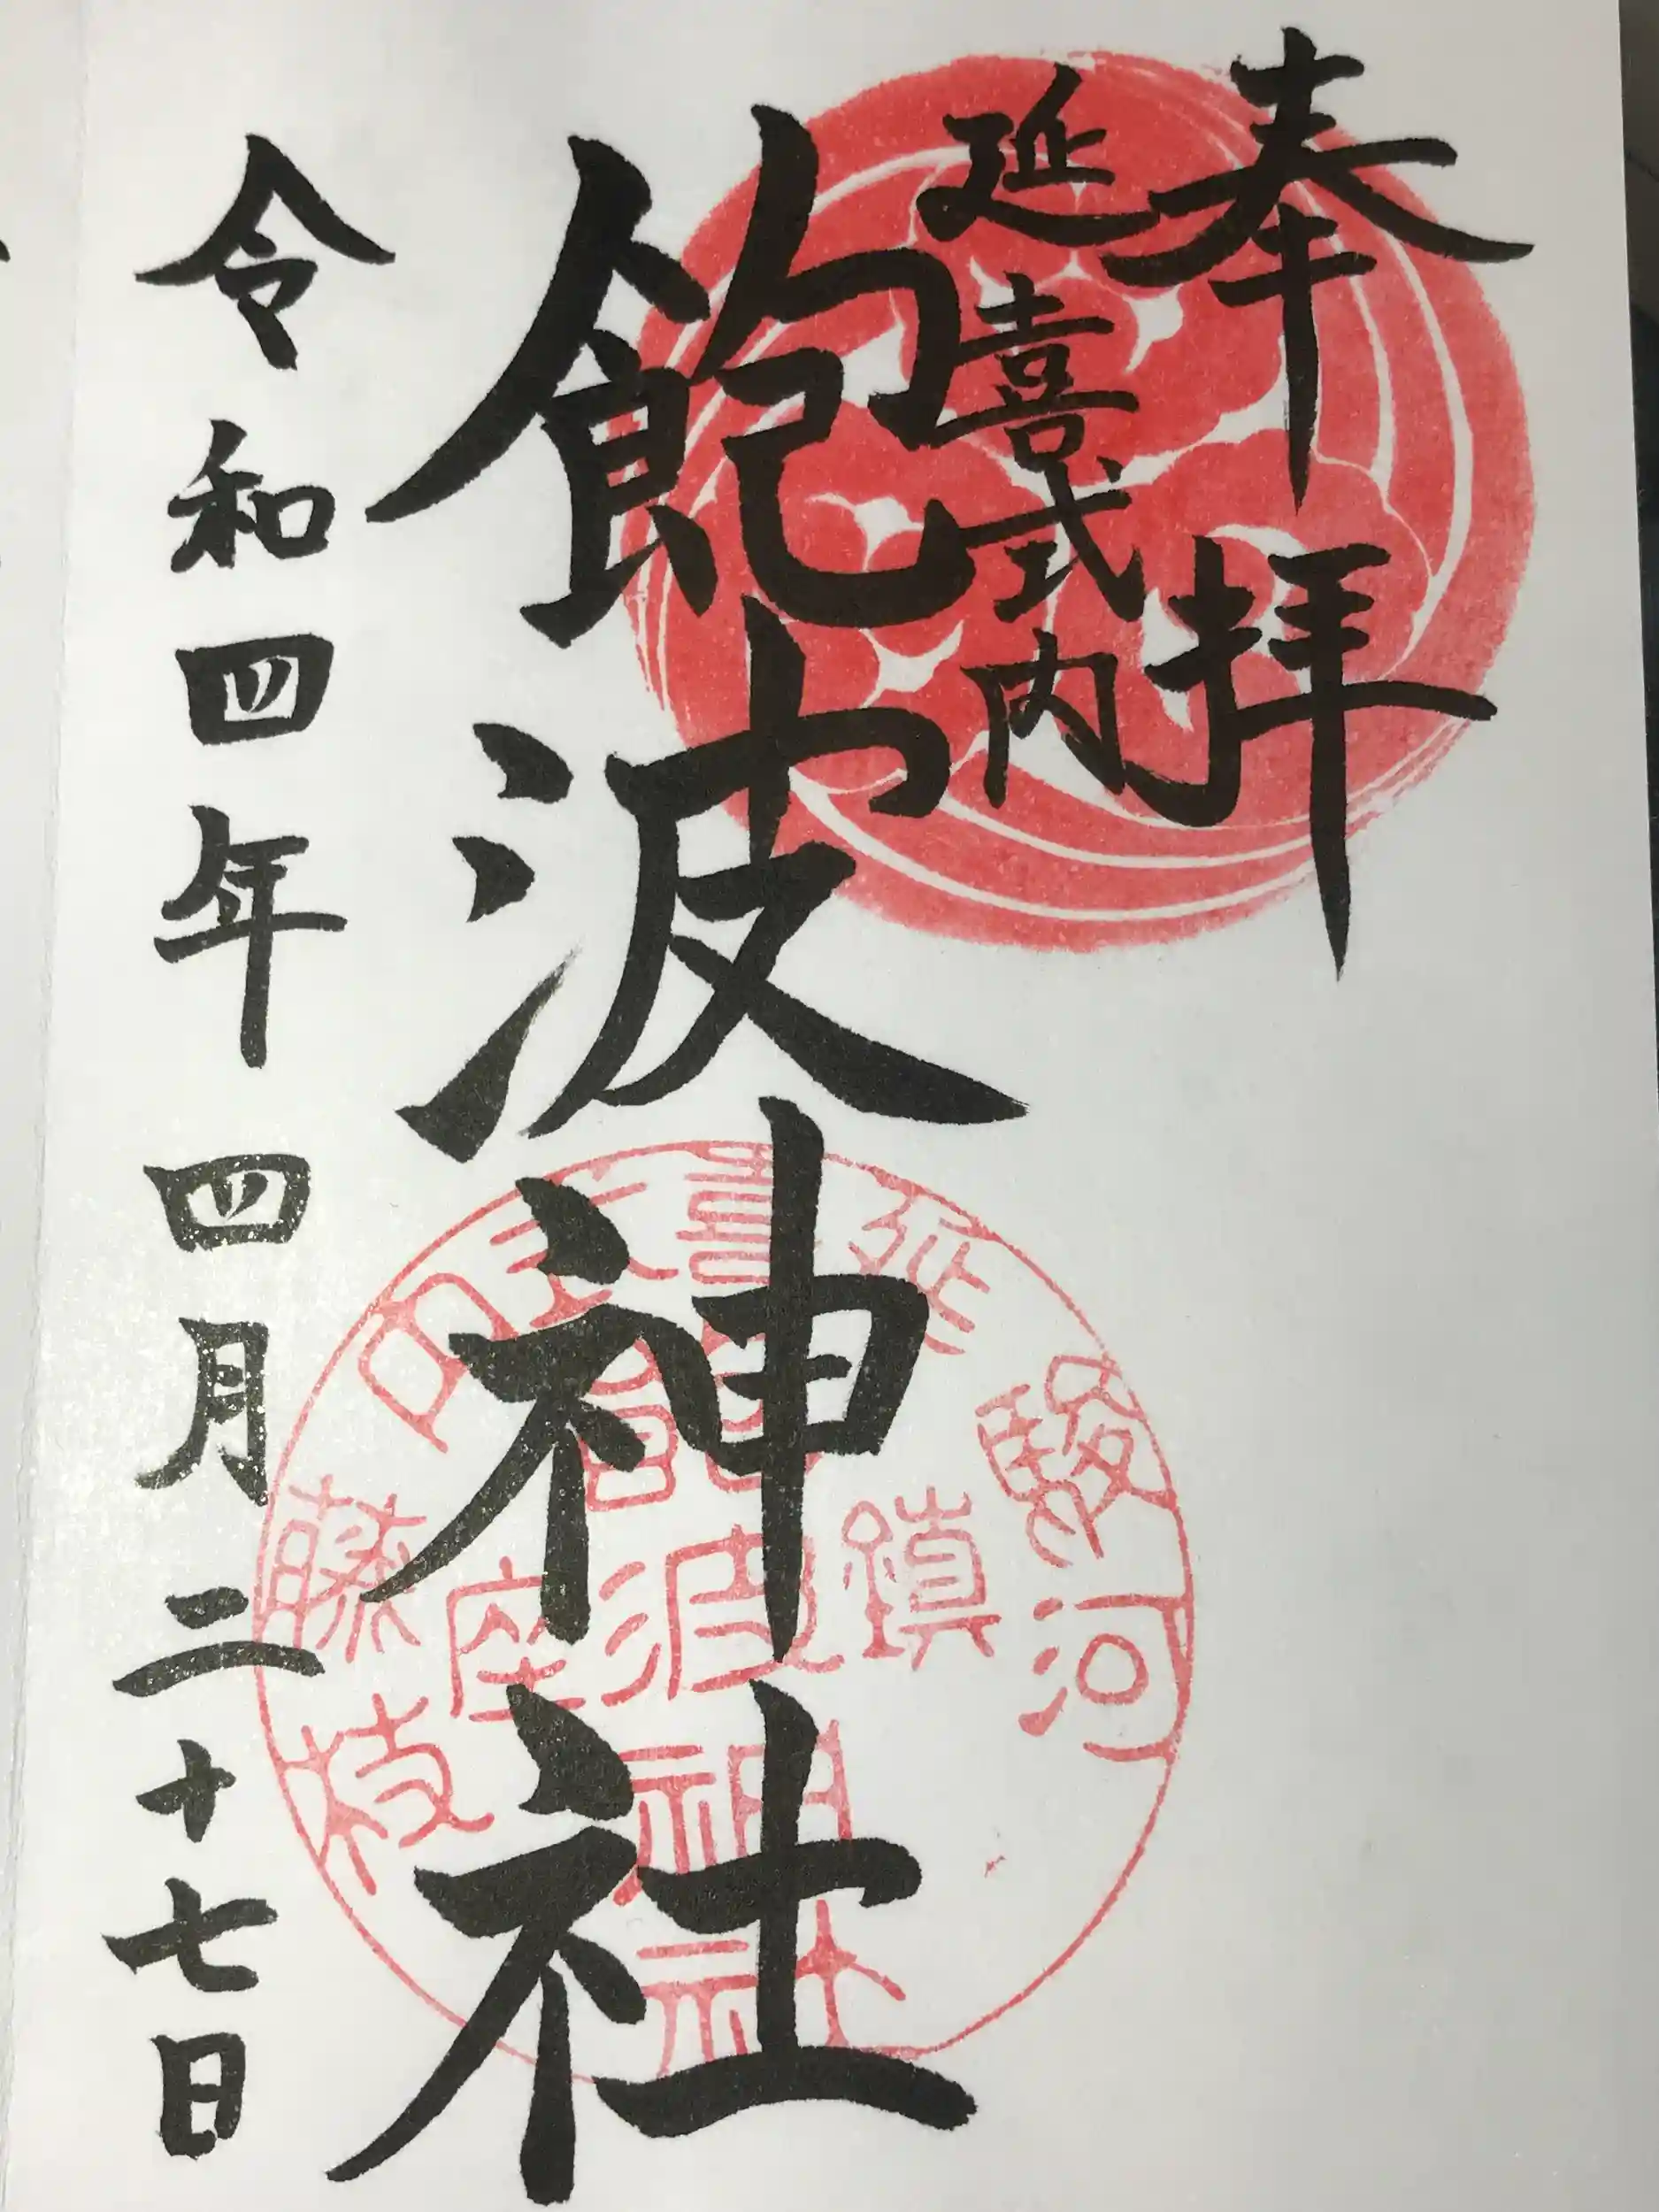 奉拝
延喜式内
飽波神社
令和四年四月二十七日
駿河
延喜式内
藤枝
鎮座
飽波神社